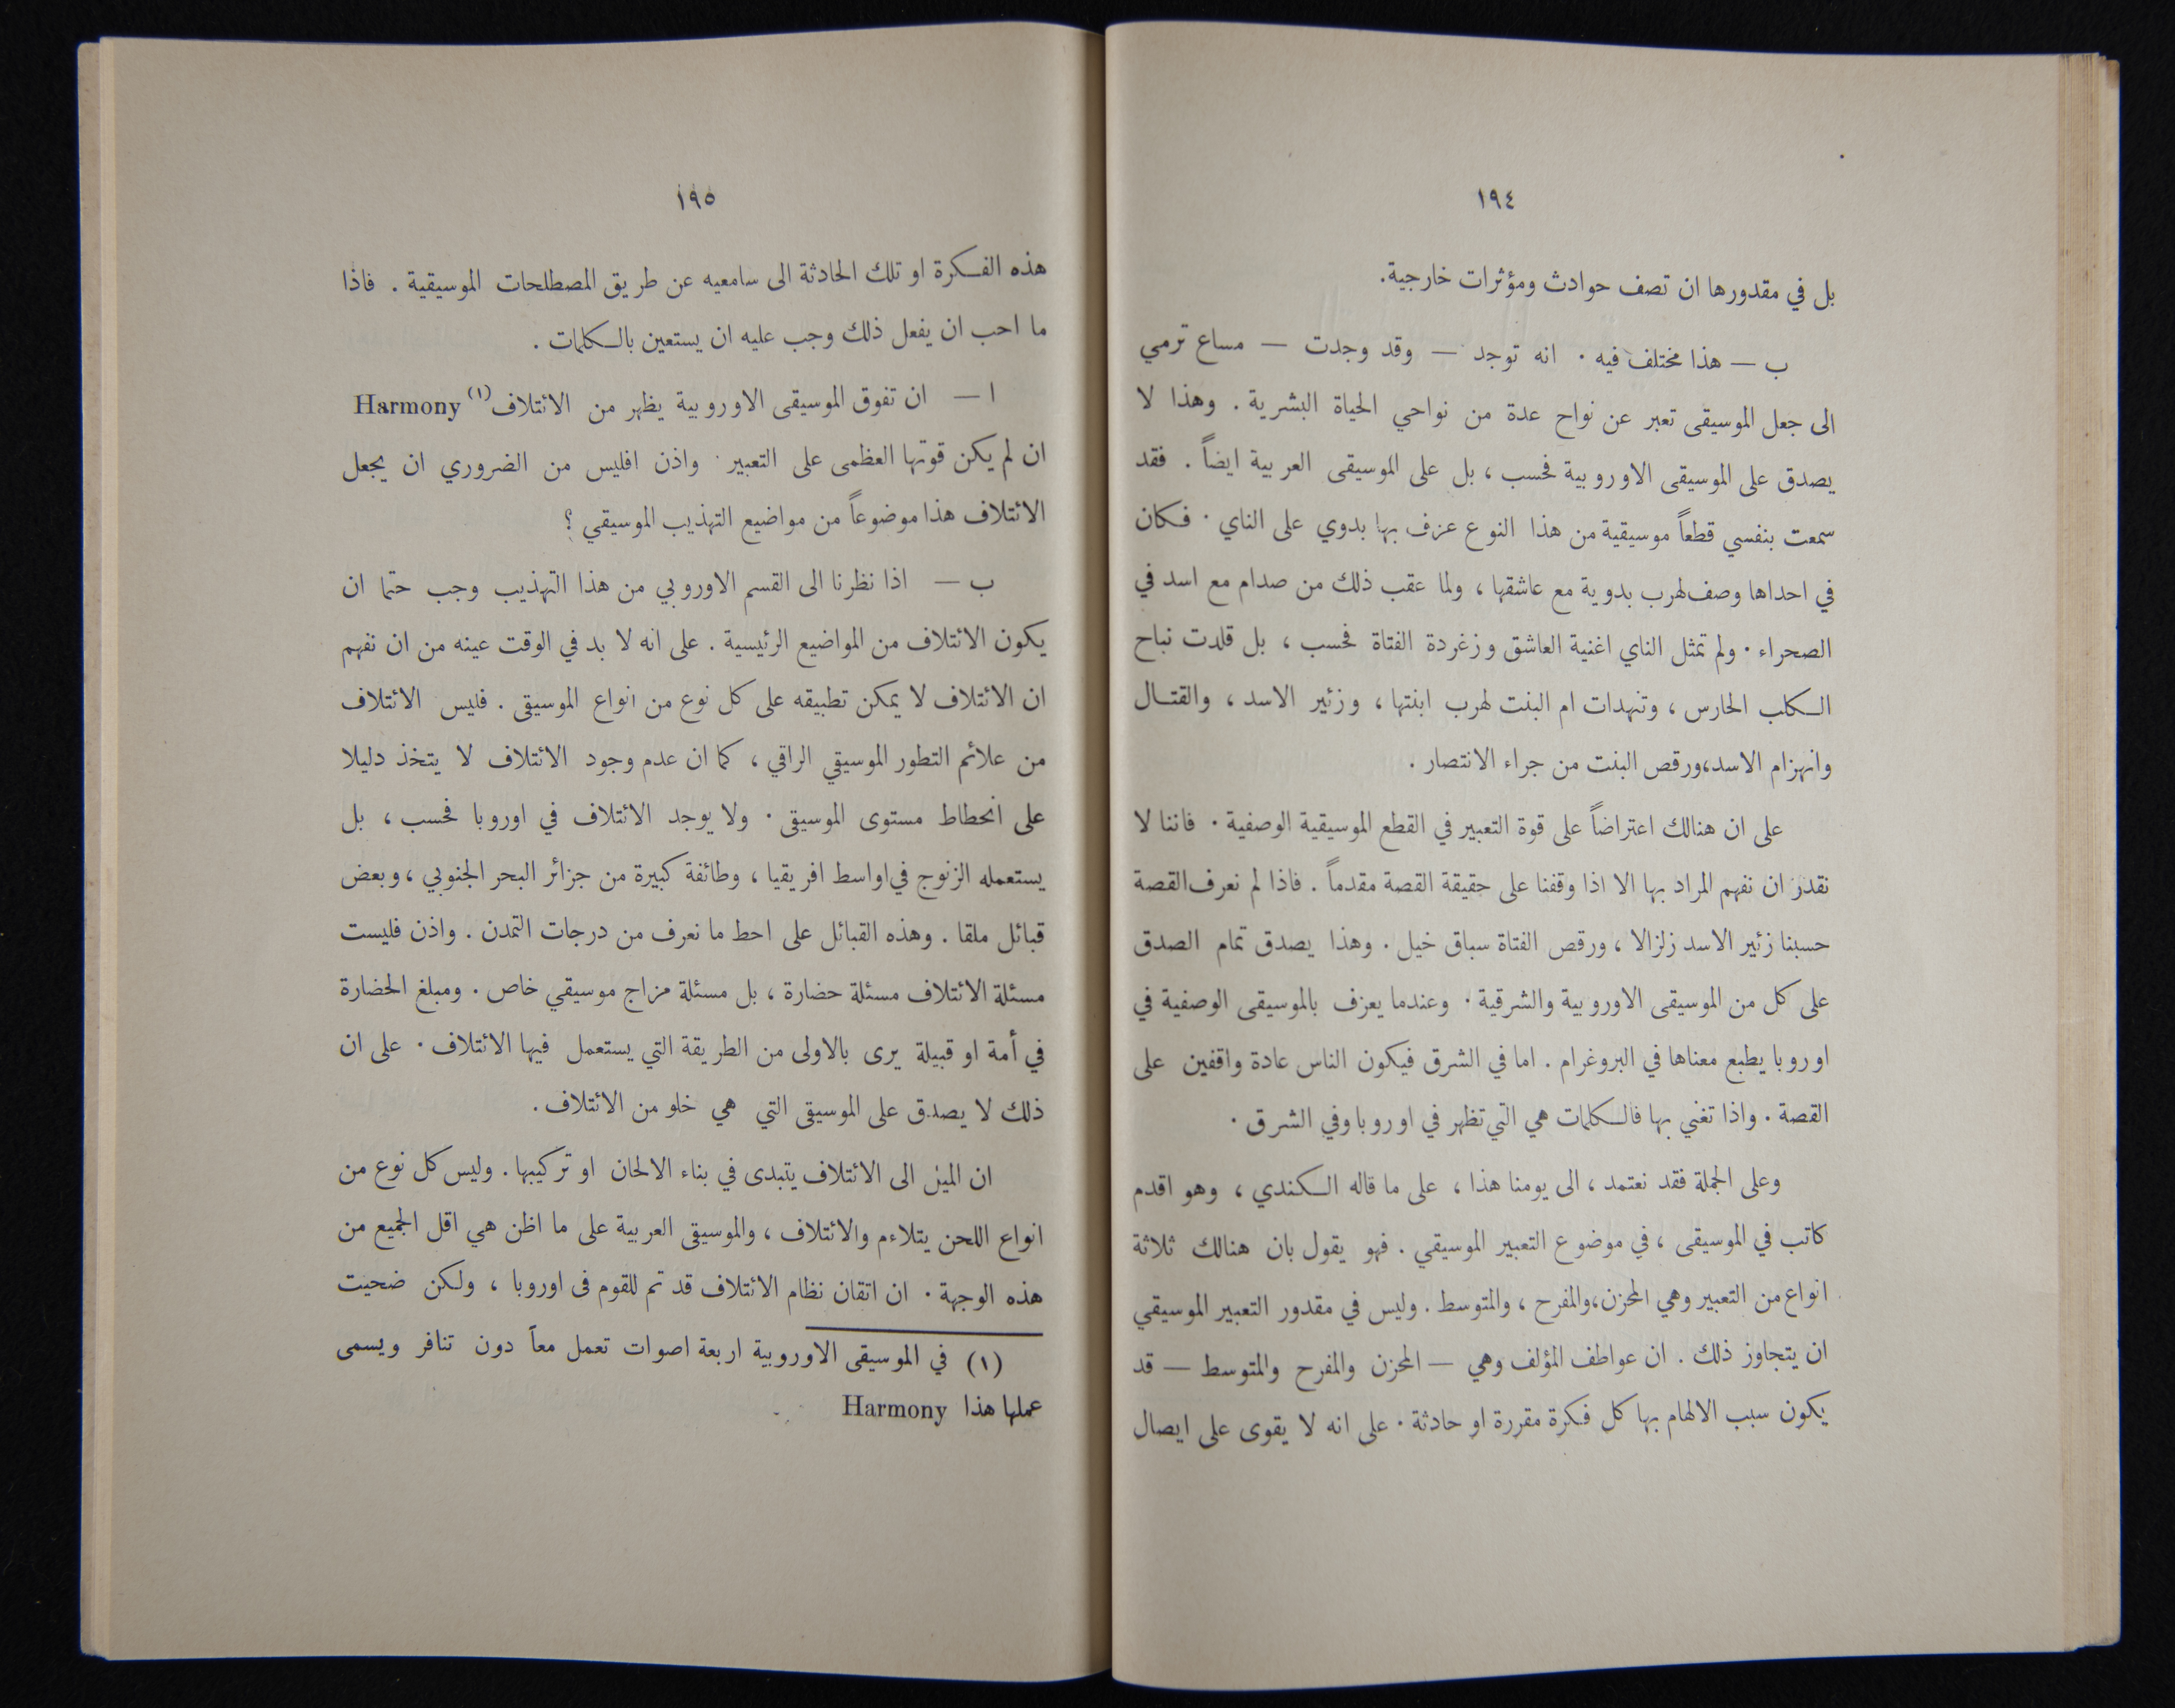 ١٩٤
بل في مقدورها ان تصف حوادث ومؤثرات خارجية.
ب — هذا مختلف فيه . انه توجد — وقد وجدت — مساع ترمي
الى جعل الموسيقى تعبر عن نواح عدة من نواحي الحياة البشرية . وهذا لا
يصدق على الموسيقى الاوروبية فحسب ، بل على الموسيقى العربية ايضاً . فقد
سمعت بنفسي قطعاً موسيقية من هذا النوع عزف بها بدوي على الناي . فكان
في احداها وصف لهرب بدوية مع عاشقها ، ولما عقب ذلك من صدام مع اسد في
الصحراء . ولم تمثل الناي اغنية العاشق وزغردة الفتاة فحسب ، بل قلدت نباح
الكلب الحارس ، وتنهدات ام البنت لهرب ابنتها ، وزئير الاسد ، والقتال
وانهزام الاسد،ورقص البنت من جراء الانتصار .
على ان هنالك اعتراضاً على قوة التعبير في القطع الموسيقية الوصفية . فاننا لا
نقدر ان نفهم المراد بها الا اذا وقفنا على حقيقة القصة مقدماً . فاذا لم نعرف القصة
حسبنا زئير الاسد زلزالا ، ورقص الفتاة سباق خيل . وهذا يصدق تمام الصدق
على كل من الموسيقى الاوروبية والشرقية . وعندما يعزف بالموسيقى الوصفية في
اوروبا يطبع معناها في البروغرام . اما في الشرق فيكون الناس عادة واقفين على
القصة . واذا تغني بها فالكلمات هي التي تظهر في اوروبا وفي الشرق .
وعلى الجملة فقد نعتمد ، الى يومنا هذا ، على ما قاله الكندي ، وهو اقدم
كاتب في الموسيقى ، في موضوع التعبير الموسيقي . فهو يقول بان هنالك ثلاثة
انواع من التعبير وهي المحزن،والمفرح ، والمتوسط . وليس في مقدور التعبير الموسيقي
ان يتجاوز ذلك . ان عواطف المؤلف وهي — المحزن والمفرح والمتوسط — قد
يكون سبب الالهام بها كل فكرة مقررة او حادثة . على انه لا يقوى على ايصال
١٩٥
هذه الفكرة او تلك الحادثة الى سامعيه عن طريق المصطلحات الموسيقية . فاذا
ما احب ان يفعل ذلك وجب عليه ان يستعين بالكلمات .
ا — ان تفوق الموسيقى الاوروبية يظهر من الائتلاف (١) Harmony
ان لم يكن قوتها العظمى على التعبير . واذن افليس من الضروري ان يجعل
الائتلاف هذا موضوعاً من مواضيع التهذيب الموسيقي ؟
ب — اذا نظرنا الى القسم الاوروبي من هذا التهذيب وجب حتما ان
يكون الائتلاف من المواضيع الرئيسية . على انه لا بد في الوقت عينه من ان نفهم
ان الائتلاف لا يمكن تطبيقه على كل نوع من انواع الموسيقى . فليس الائتلاف
من علائم التطور الموسيقي الراقي ، كما ان عدم وجود الائتلاف لا يتخذ دليلا
على انحطاط مستوى الموسيقى . ولا يوجد الائتلاف في اوروبا فحسب ، بل
يستعمله الزنوج في اواسط افريقيا ، وطائفة كبيرة من جزائر البحر الجنوبي ، وبعض
قبائل ملقا . وهذه القبائل على احط ما نعرف من درجات التمدن . واذن فليست
مسئلة الائتلاف مسئلة حضارة ، بل مسئلة مزاج موسيقي خاص . ومبلغ الحضارة
في أمة او قبيلة يرى بالاولى من الطريقة التي يستعمل فيها الائتلاف . على ان
ذلك لا يصدق على الموسيقى التي هي خلو من الائتلاف .
ان الميل الى الائتلاف يتبدى في بناء الالحان او تركيبها . وليس كل نوع من
انواع اللحن يتلاءم والائتلاف ، والموسيقى العربية على ما اظن هي اقل الجميع من
هذه الوجهة . ان اتقان نظام الائتلاف قد تم للقوم فى اوروبا ، ولكن ضحيت
(١) في الموسيقى الاوروبية اربعة اصوات تعمل معاً دون تنافر ويسمى
عملها هذا Harmony